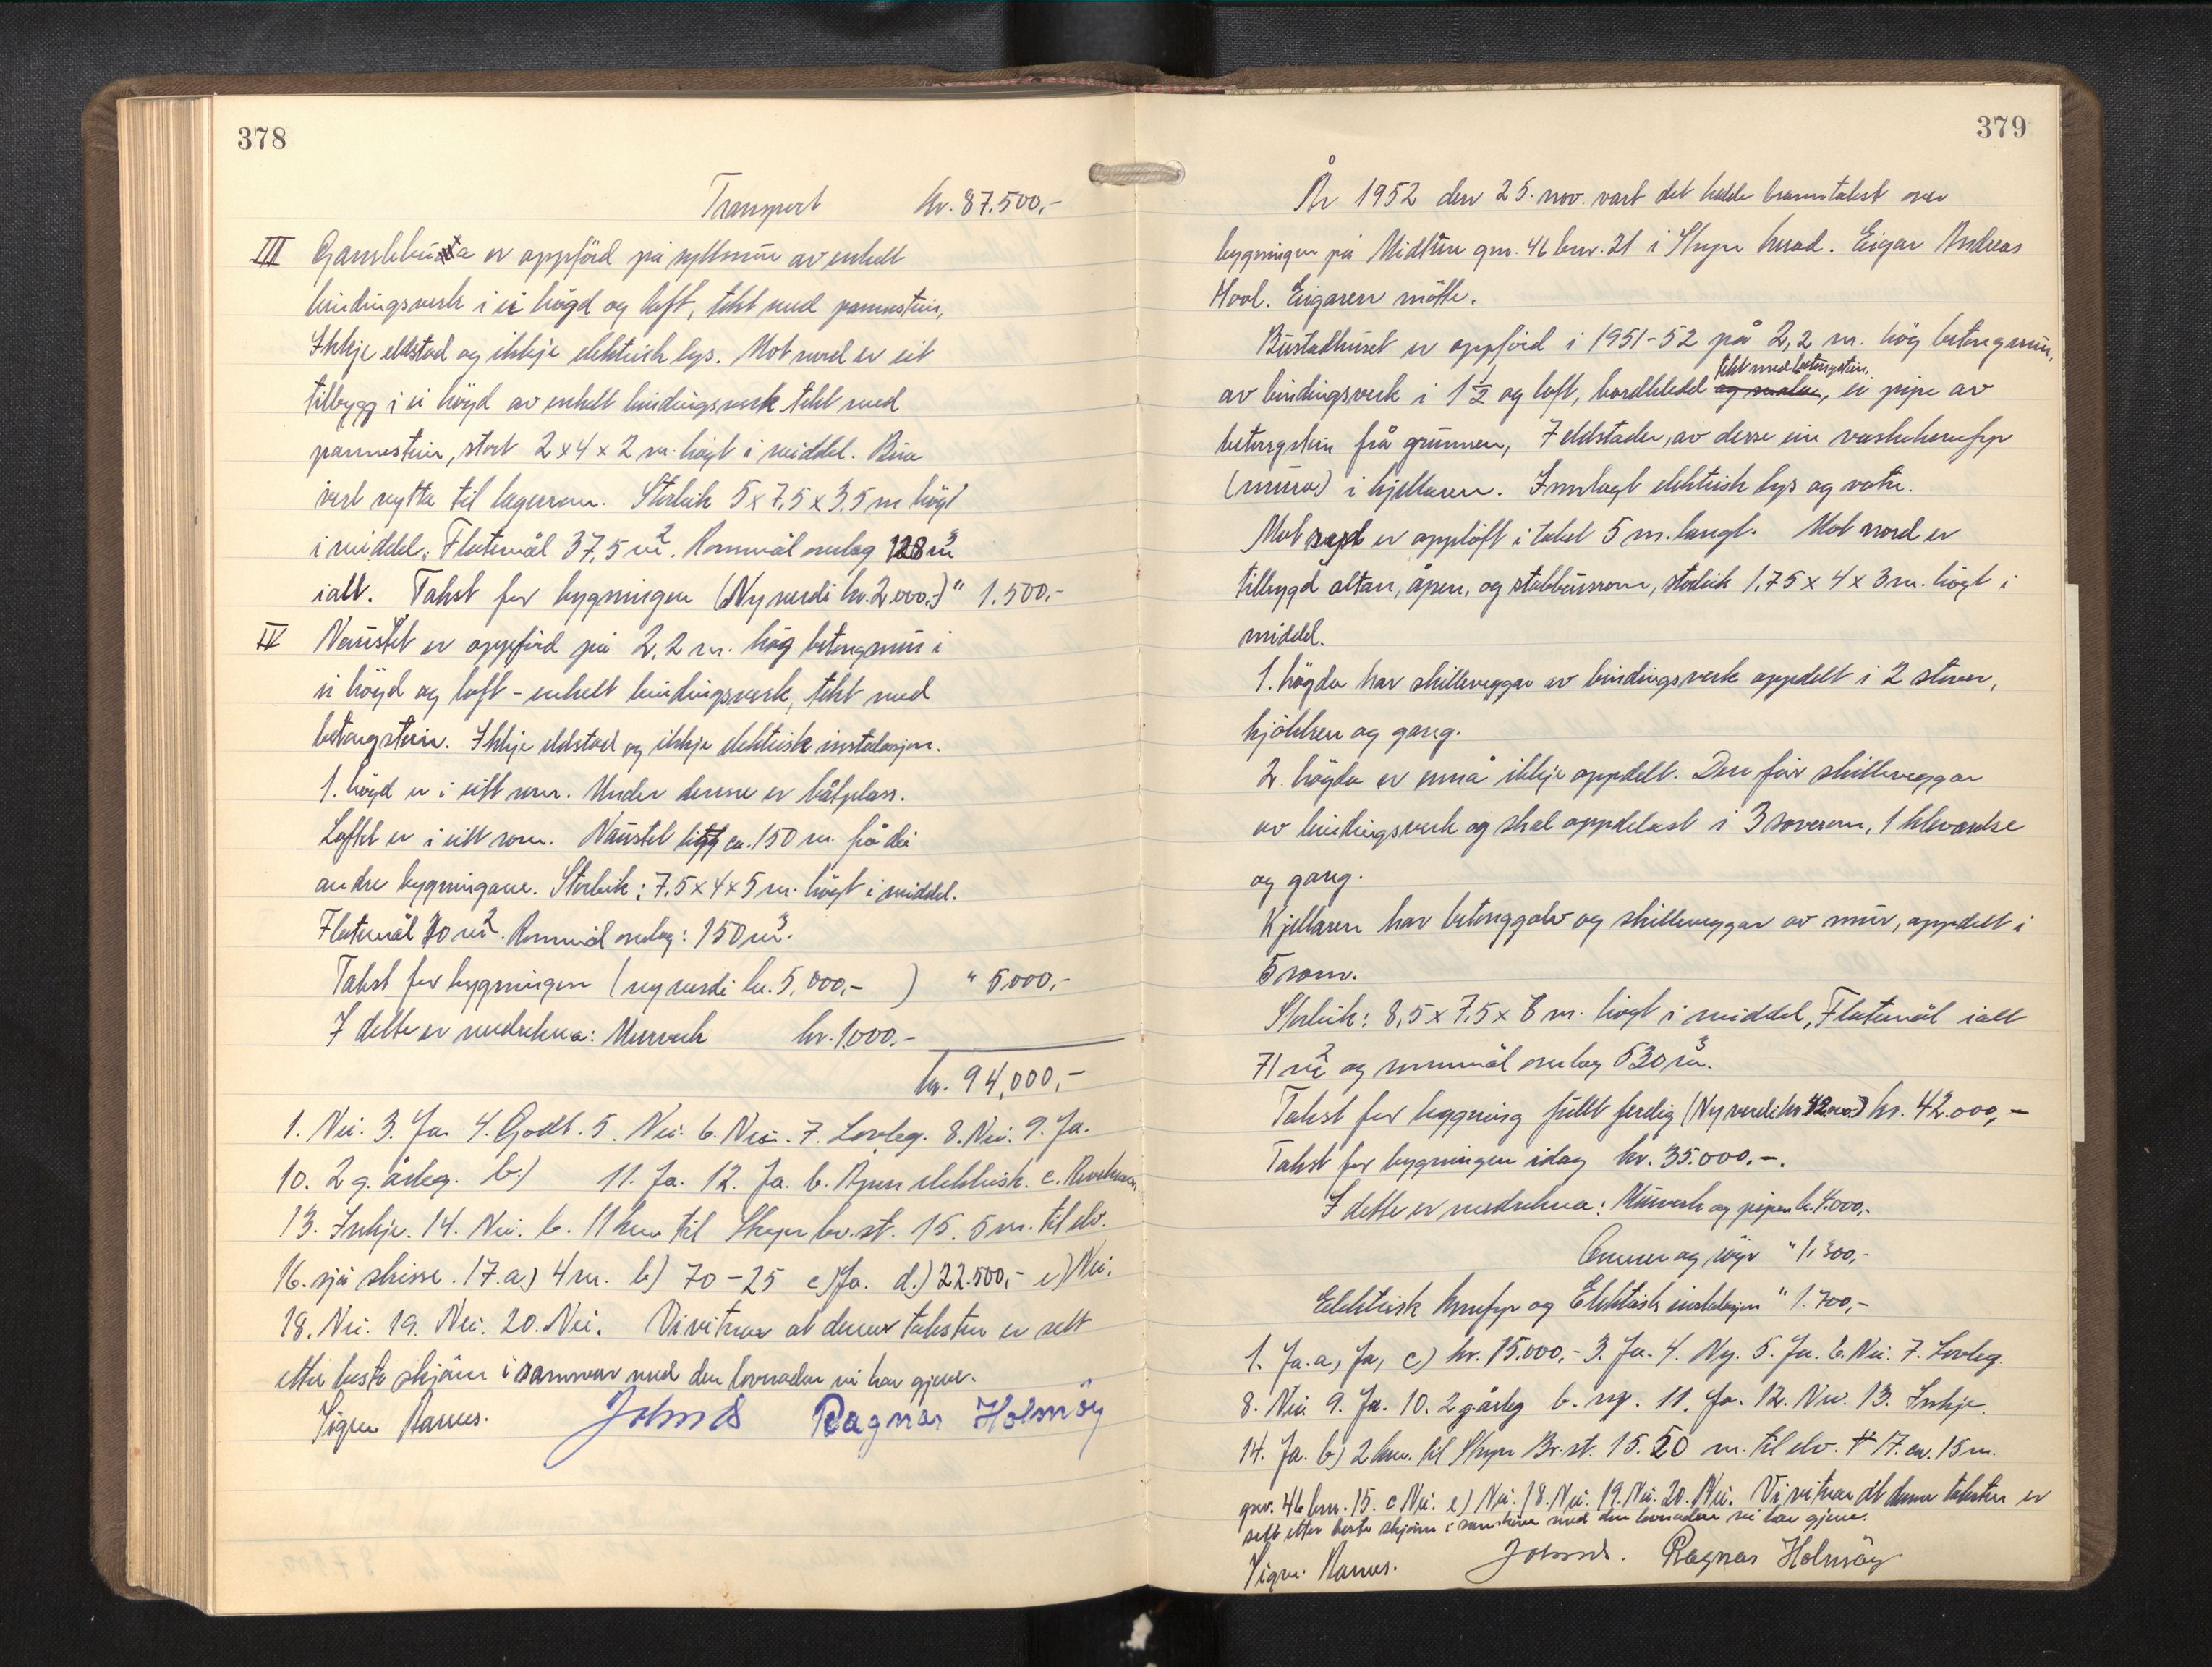 378
Transport kr. 87.500,-
III er oppförd på syllmur av enkelt
bindingsverk i ei högd og loft, tekt med pannestein,
Ikkje eldstad og ikkje elektrisk lys. Mot nord er eit
tilbygg i ei höyd av enkelt bindingsverk tekt med
pannestein, stort 2 x 4 x 2 m. högt i middel. Bua
vert nytta til lagerrom. Storleik 5 x 7,5 x 3,5 m högt
i middel. Flatemål 37,5 m². Rommål omlag 128 m³
ialt. Takst for bygningen (Ny verdi kr. 2000,-) " 1.500,-
IV Naustet er oppförd på 2,2 m. hög betongmur i
ei höyd og loft - enkelt bindingsverk, tekt med
betongstein. Ikkje eldstad og ikkje elektrisk instalasjon.
1. höyd er i eitt rom. Under denne er båtplass.
Loftet er i eitt rom. Naustet ligg ca. 150 m. frå dei
andre bygningane. Storleik: 7,5 x 4 x 5 m. högt i middel.
Flatemål 30 m². Rommål omlag: 150 m³.
Takst for bygningen (ny verdi kr. 5.000,- ) " 5.000,-
I dette er medrekna: Murverk kr. 1.000.-
kr. 94,000,-
1. Nei. 3. Ja. 4. Godt. 5. Nei. 6. Nei. 7. Lovleg. 8. Nei. 9. Ja.
10. 2 g. årleg. b.) 11. Ja. 12. Ja. b. Open elektrisk. c.
13. Inkje. 14. Nei. b. 11 km til Stryn br. st. 15. 5 m. til elv.
16. sjå skisse. 17. a) 4 m. b) 70-25 c) Ja. d.) 22.500,- e) Nei.
18. Nei. 19. Nei. 20. Nei. Vi vitnar at denne taksten er sett
etter beste skjön i samsvar med den lovnaden vi har gjeve.
Ragnar Holmöy
379
År 1952 den 25. nov. vart det halde branntakst over
bygningen på Midtun gnr. 46 bnr. 21 i Stryn herad. Eigar Andreas
Hool. Eigaren mötte.
Bustadhuset er oppförd i 1951-52 på 2,2 m. hög betongmur,
av bindingsverk i 1½ og loft, bordkledd tekt med betongstein, ei pipe av
betongstein frå grunnen, 7 eldstader, av desse ein vaskekomfyr
(mura) i kjellaren. Innlagt elektrisk lys og vatn.
Mot er opplöft i taket 5 m. langt. Mot nord er
tilbygd altan, open, og stabbursrom, storleik 1,75 x 4 x 3 m. högt i
middel.
1. högda har skilleveggar av bindingsverk oppdelt i 2 stover,
kjökken og gang.
2. högda er ennå ikkje oppdelt. Den får skilleveggar
av bindingsverk og skal oppdelast i 3 soverom, 1 klevardse
og gang.
Kjellaren har betonggolv og skilleveggar av mur, oppdelt i
5 rom.
Storleik: 8,5 x 7,5 x 8 m. högt i middel, Flatemål ialt
71 m² og rommål omlag 530 m³.
Takst for bygning fullt ferdig (Ny verdi kr. 42.000,-) kr. 42.000,-
Takst for bygningen idag kr. 35.000.-.
I dette er medrekna: Murverk og piper kr. 4.000,-
Omnar og röyr " 1.300,-
Elektrisk komfyr og Elektrisk instalasjon " 1.700,-
1. Ja. a, Ja, c) kr. 15.000,- 3. Ja. 4. Ny. 5. Ja. 6. Nei. 7. Lovleg.
8. Nei. 9. Ja. 10. 2 g. årleg b. ny. 11. Ja. 12. Nei. 13. Inkje.
14. Ja. b) 2 km. til Stryn Br. st. 15. 50 m. til elv. 17. ca. 15 m.
gnr. 46 bnr. 15. c Nei. e) Nei. 18. Nei. 19. Nei. 20. Nei. Vi vitnar at denne taksten er
sett etter beste skjönn i samsvar med den lovnaden vi har gjeve.
Ragnar Holmöy